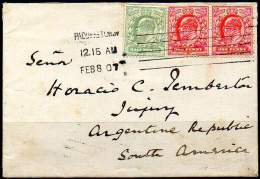 PAQUEBOT
12.15 AM
FEB 8 07
Señor
Horacio C. Pemberton
Jujuy
Argentine Republic
South America